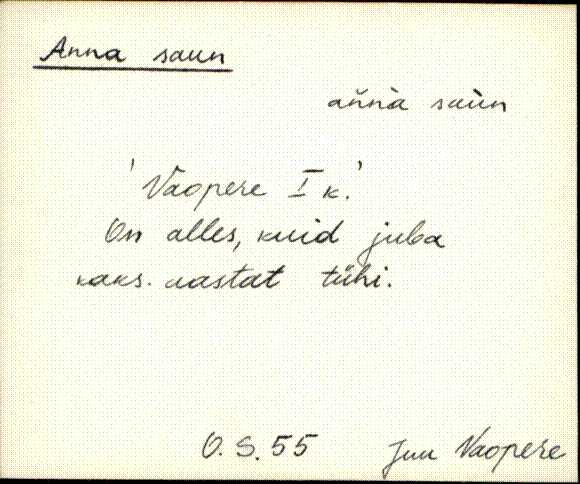 Anna saun
an̆nà saùn
'Vaopere I k.'
On alles, kuid juba
kaks. aastat tühi.
O. S. 55 Juu Vaopere